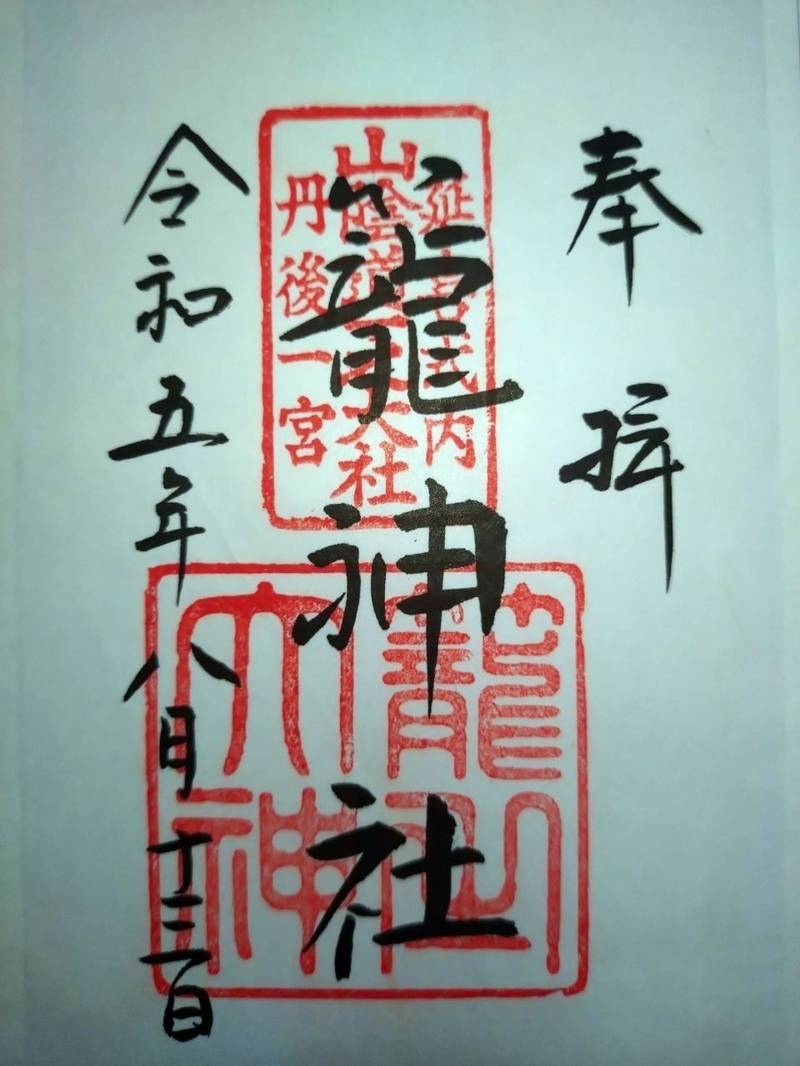 奉拝
延喜式内
山陰道一之大社
丹後一宮
籠神社
籠之大神
令和五年八月十三日